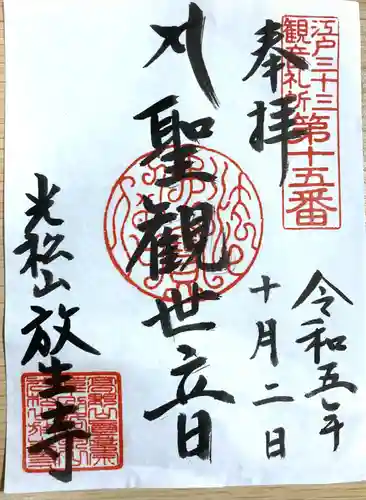 江戸三十三
観音札所
第十五番
奉拝
令和五年
十月二日
聖観世音
光松山
放生寺